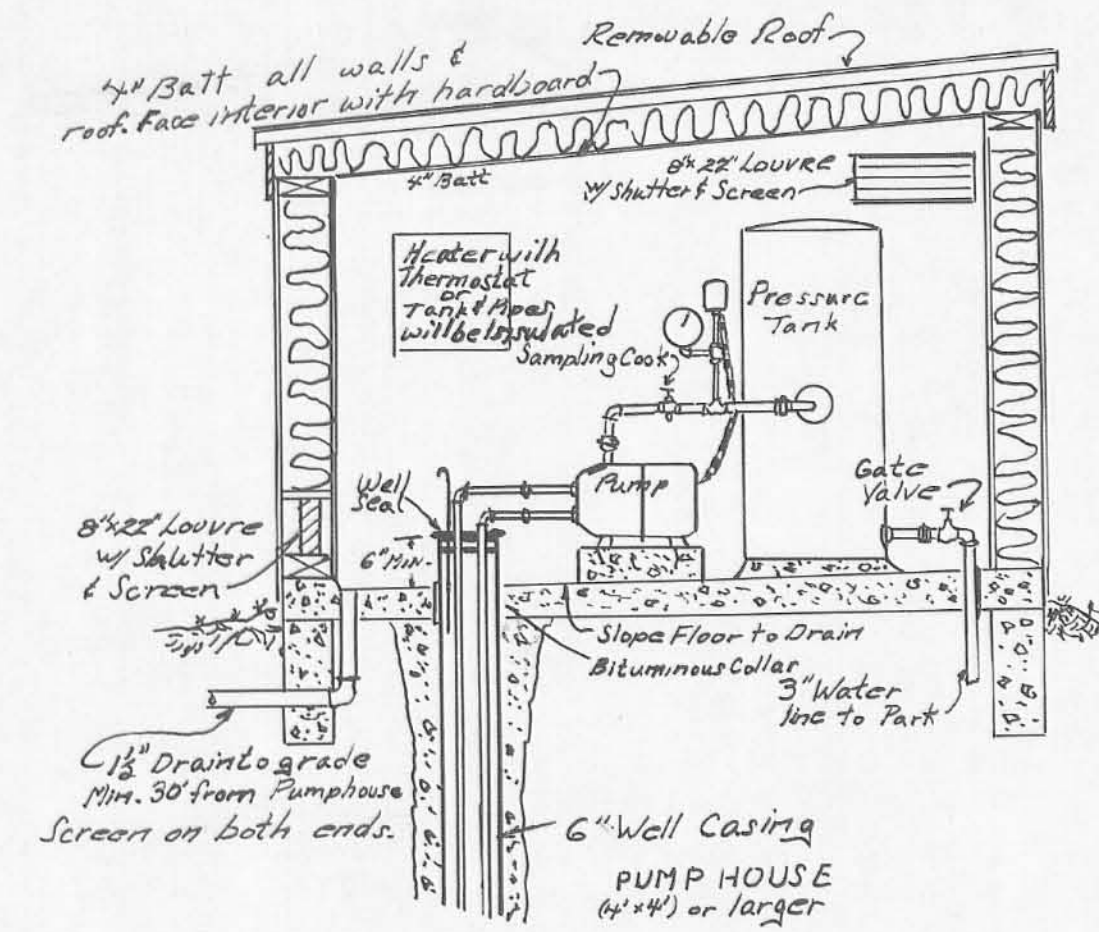 Removable Roof
4" Batt all walls &
roof. Face interior with hardboard
4" Batt
8"x 22" Louvre
w/ Shutter & Screen
Heater with
Thermostat
or
Tank & Pipes
will be Insulated
Sampling Cock
Pressure
Tank
Pump
Well
Seal
Gate
Valve
8"x22" Louvre
w/ Shlutter
& Screen
6" Min.
Slope Floor to Drain
Bituminous Collar
3" Water
line to Park
1½" Drain to grade
Min. 30' from Pumphouse
Screen on both ends.
6" Well Casing
PUMP HOUSE
(4' x 4') or larger